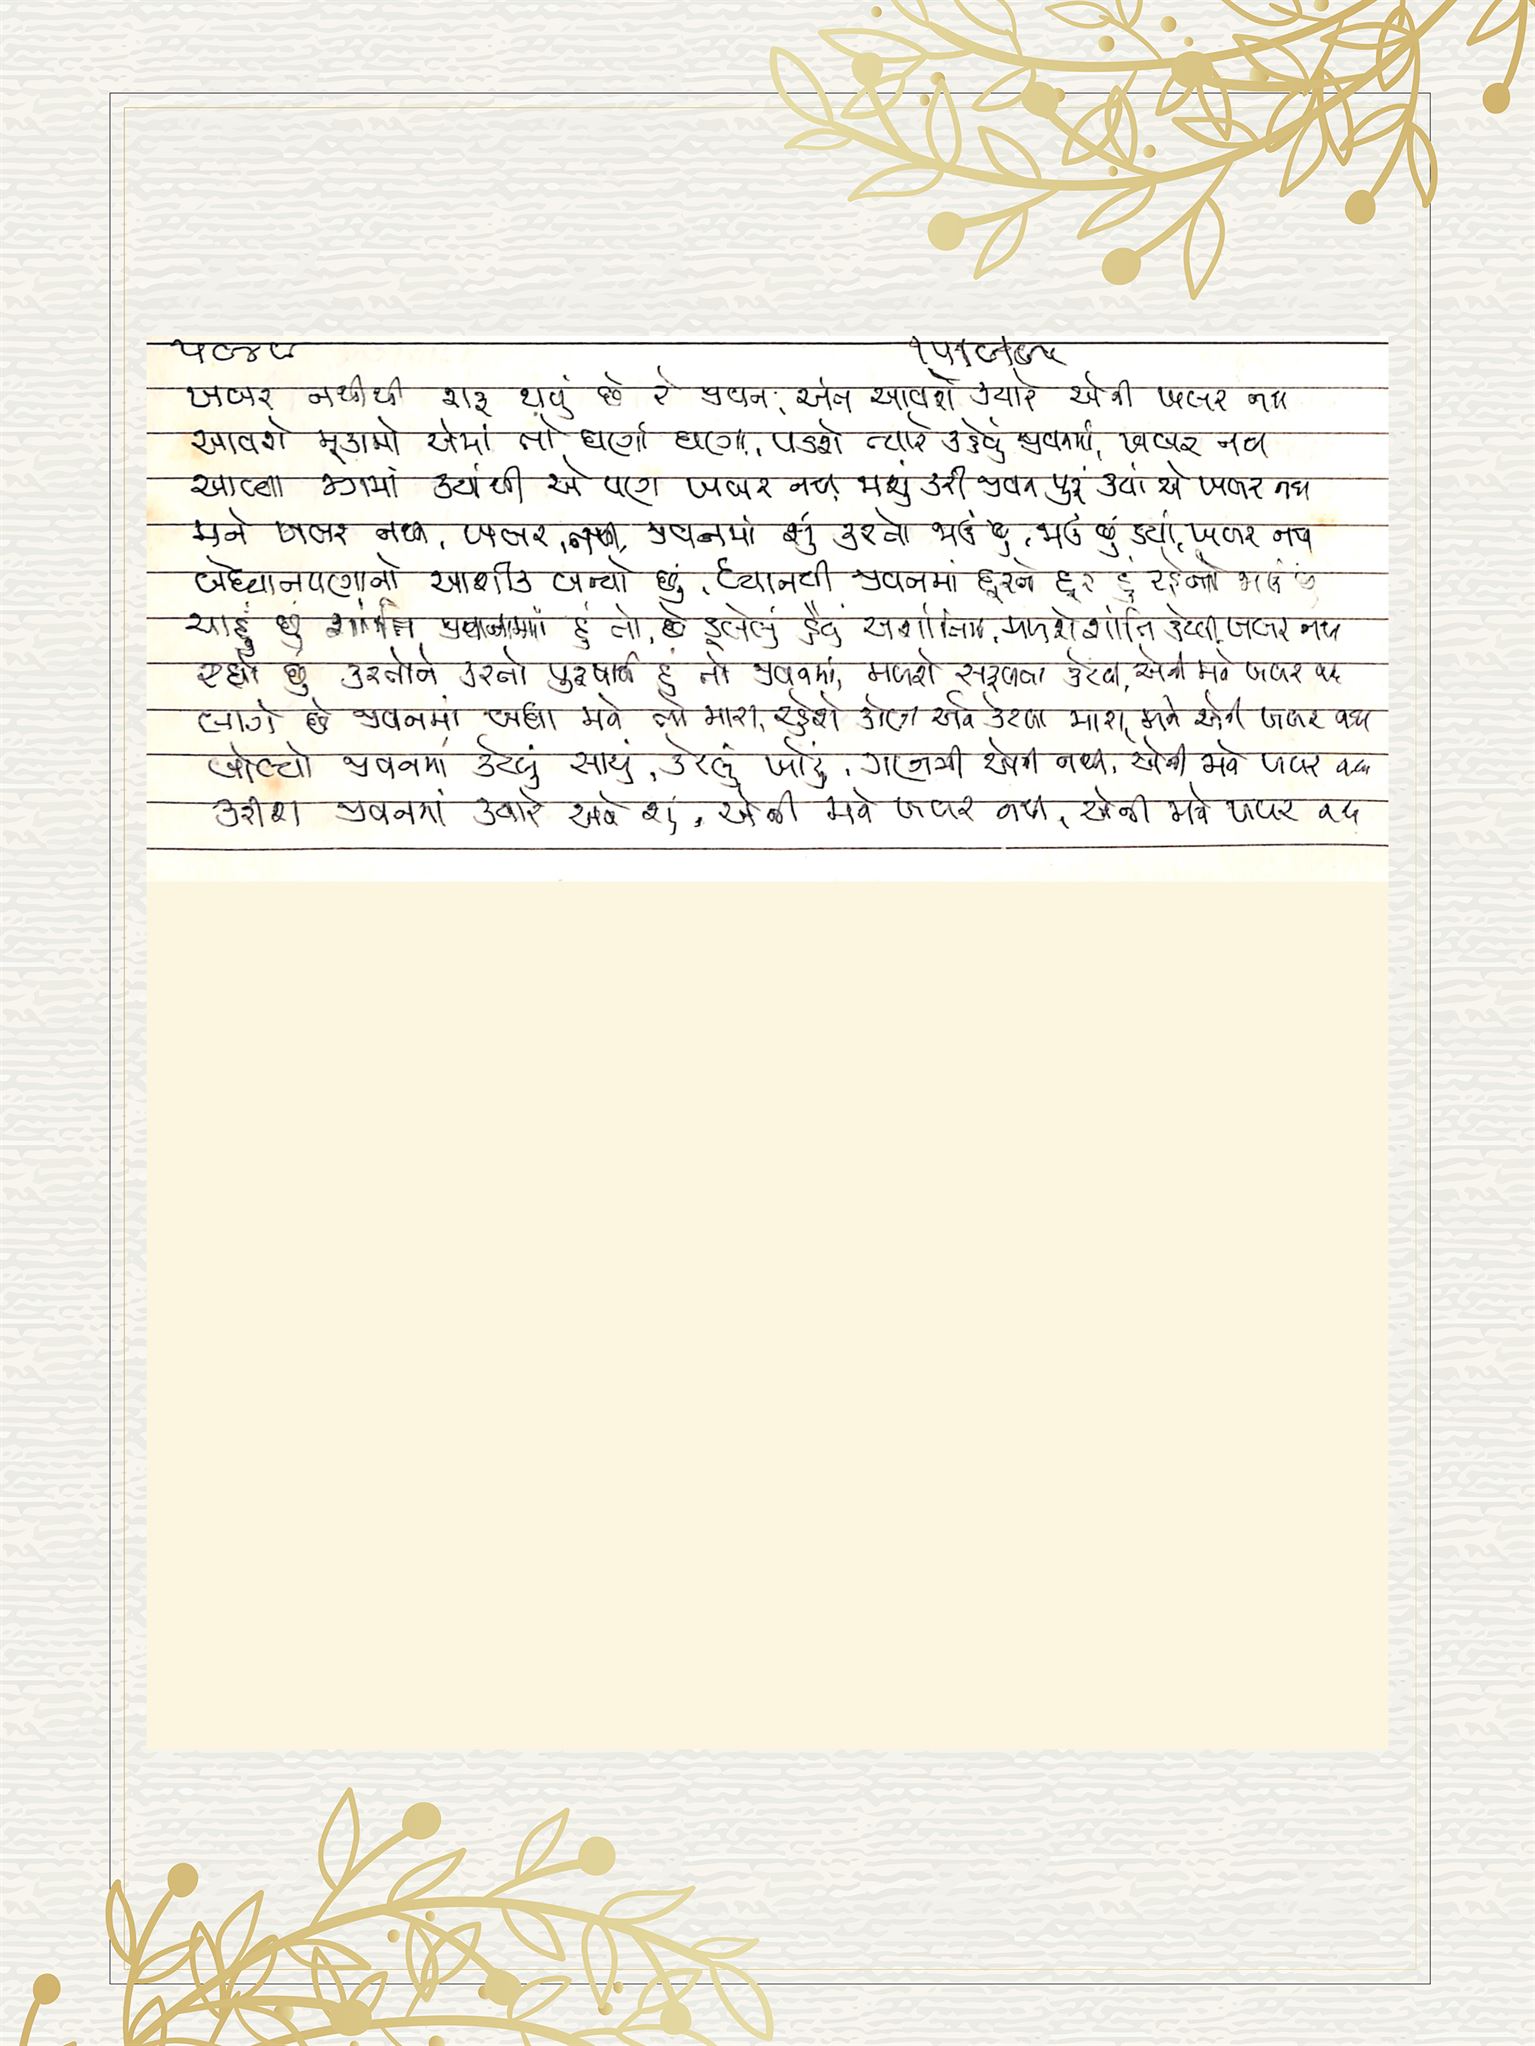 ૫૯૪૮
ખબર નથીથી શરૂ થયું છે રે જીવન, અંત આવશે ક્યારે એની ખબર નથી
આવશે મુકામો એમાં તો ઘણાં ઘણાં, પડશે ત્યારે કહેવું જીવનમાં, ખબર નથી
આવ્યા જગમાં ક્યાંથી એ પણ ખબર નથી, જાશું કરી જીવન પુરૂં ક્યાં એ ખબર નથી
મને ખબર નથી, ખબર નથી, જીવનમાં શું કરતો જાઉં છું, જાઉં છું ક્યાં, ખબર નથી
બેધ્યાનપણાનો આશીક બન્યો છું, ધ્યાનથી જીવનમાં દૂરને દૂર હું રહેતો જાઉં છું
ચાહું છું શાંતિ જીવનમાં હું તો, છે હૈયું મળશે શાંતિ કેટલી, ખબર નથી
રહ્યો છું કરતોને કરતો પુરુષાર્થ હું તો જીવનમાં, મળશે સફળતા કેટલી, એની મને ખબર નથી
લાગે છે જીવનમાં બધા મને તો મારા, રહેશે કોણ અને કેટલા મારા, મને એની ખબર નથી
બોલ્યો જીવનમાં કેટલું સાચું, કેટલું ખોટું, ગણત્રી એની નથી, એની મને ખબર નથી
કરીશ જીવનમાં ક્યારે અને શું, એની મને ખબર નથી, એની મને ખબર નથી